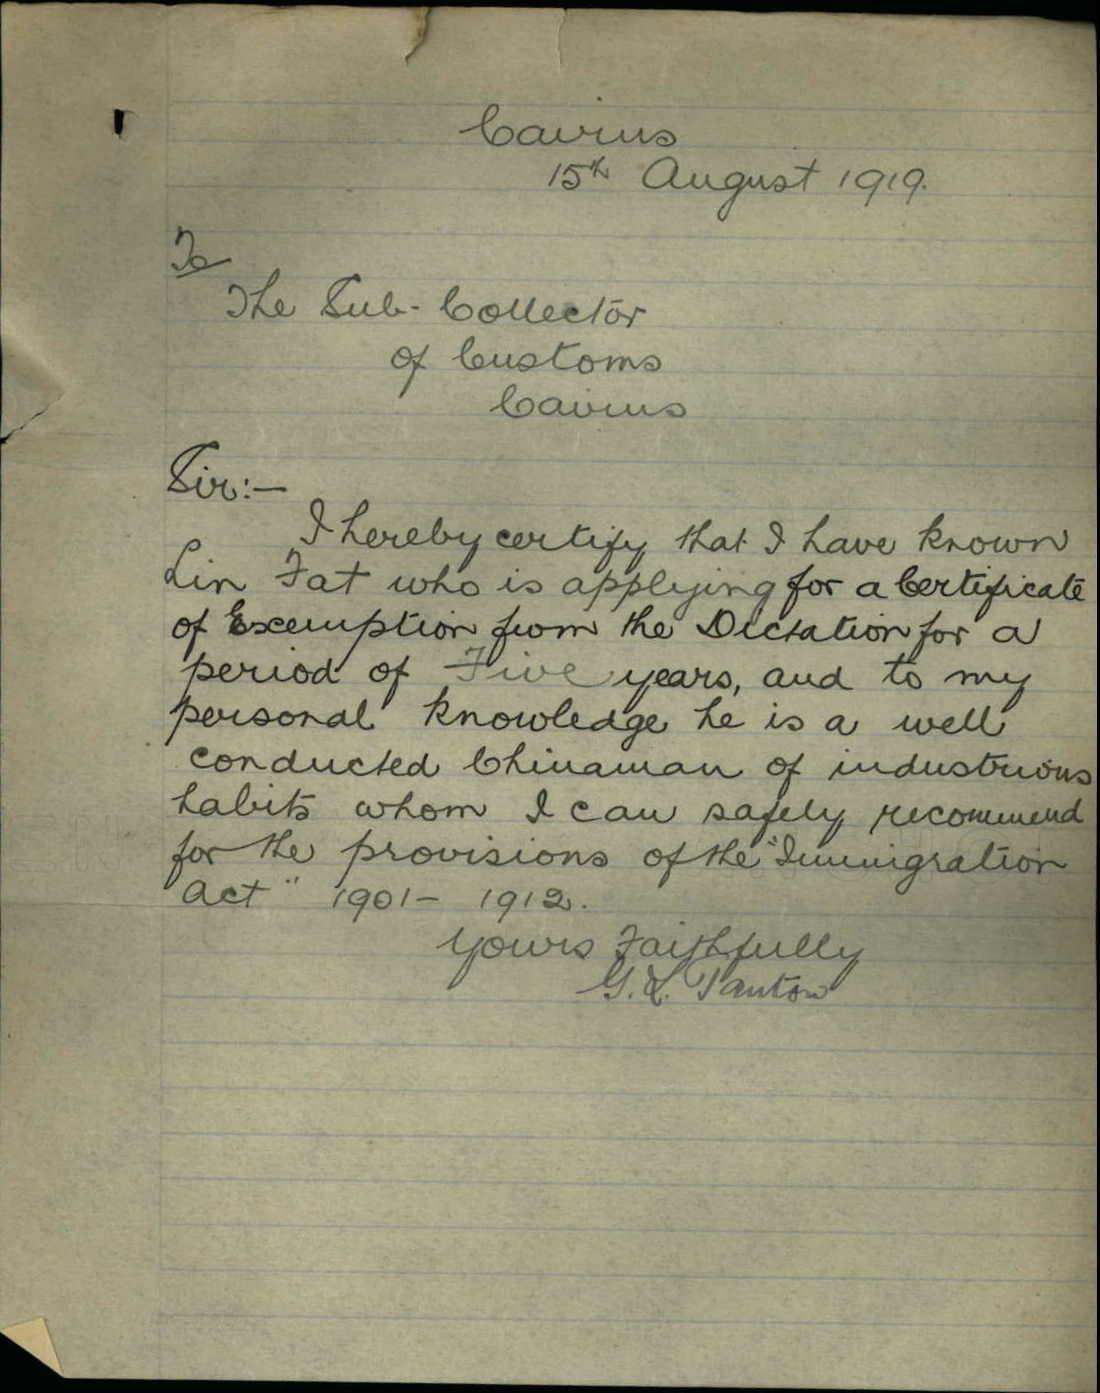 Cairns
15th August 1919.
To
The Sub-Collector
of Customs
Cairns
Sir:—
I hereby certify that I have known
Lin Fat who is applying for a Certificate
of Excemption from the Dictation for a
period of Five years, and to my
personal knowledge he is a well
conducted Chinaman of industrious
habits whom I can safely recommend
for the provisions of the "Immigration
Act" 1901- 1912.
Yours Faithfully
G. L. Tanton